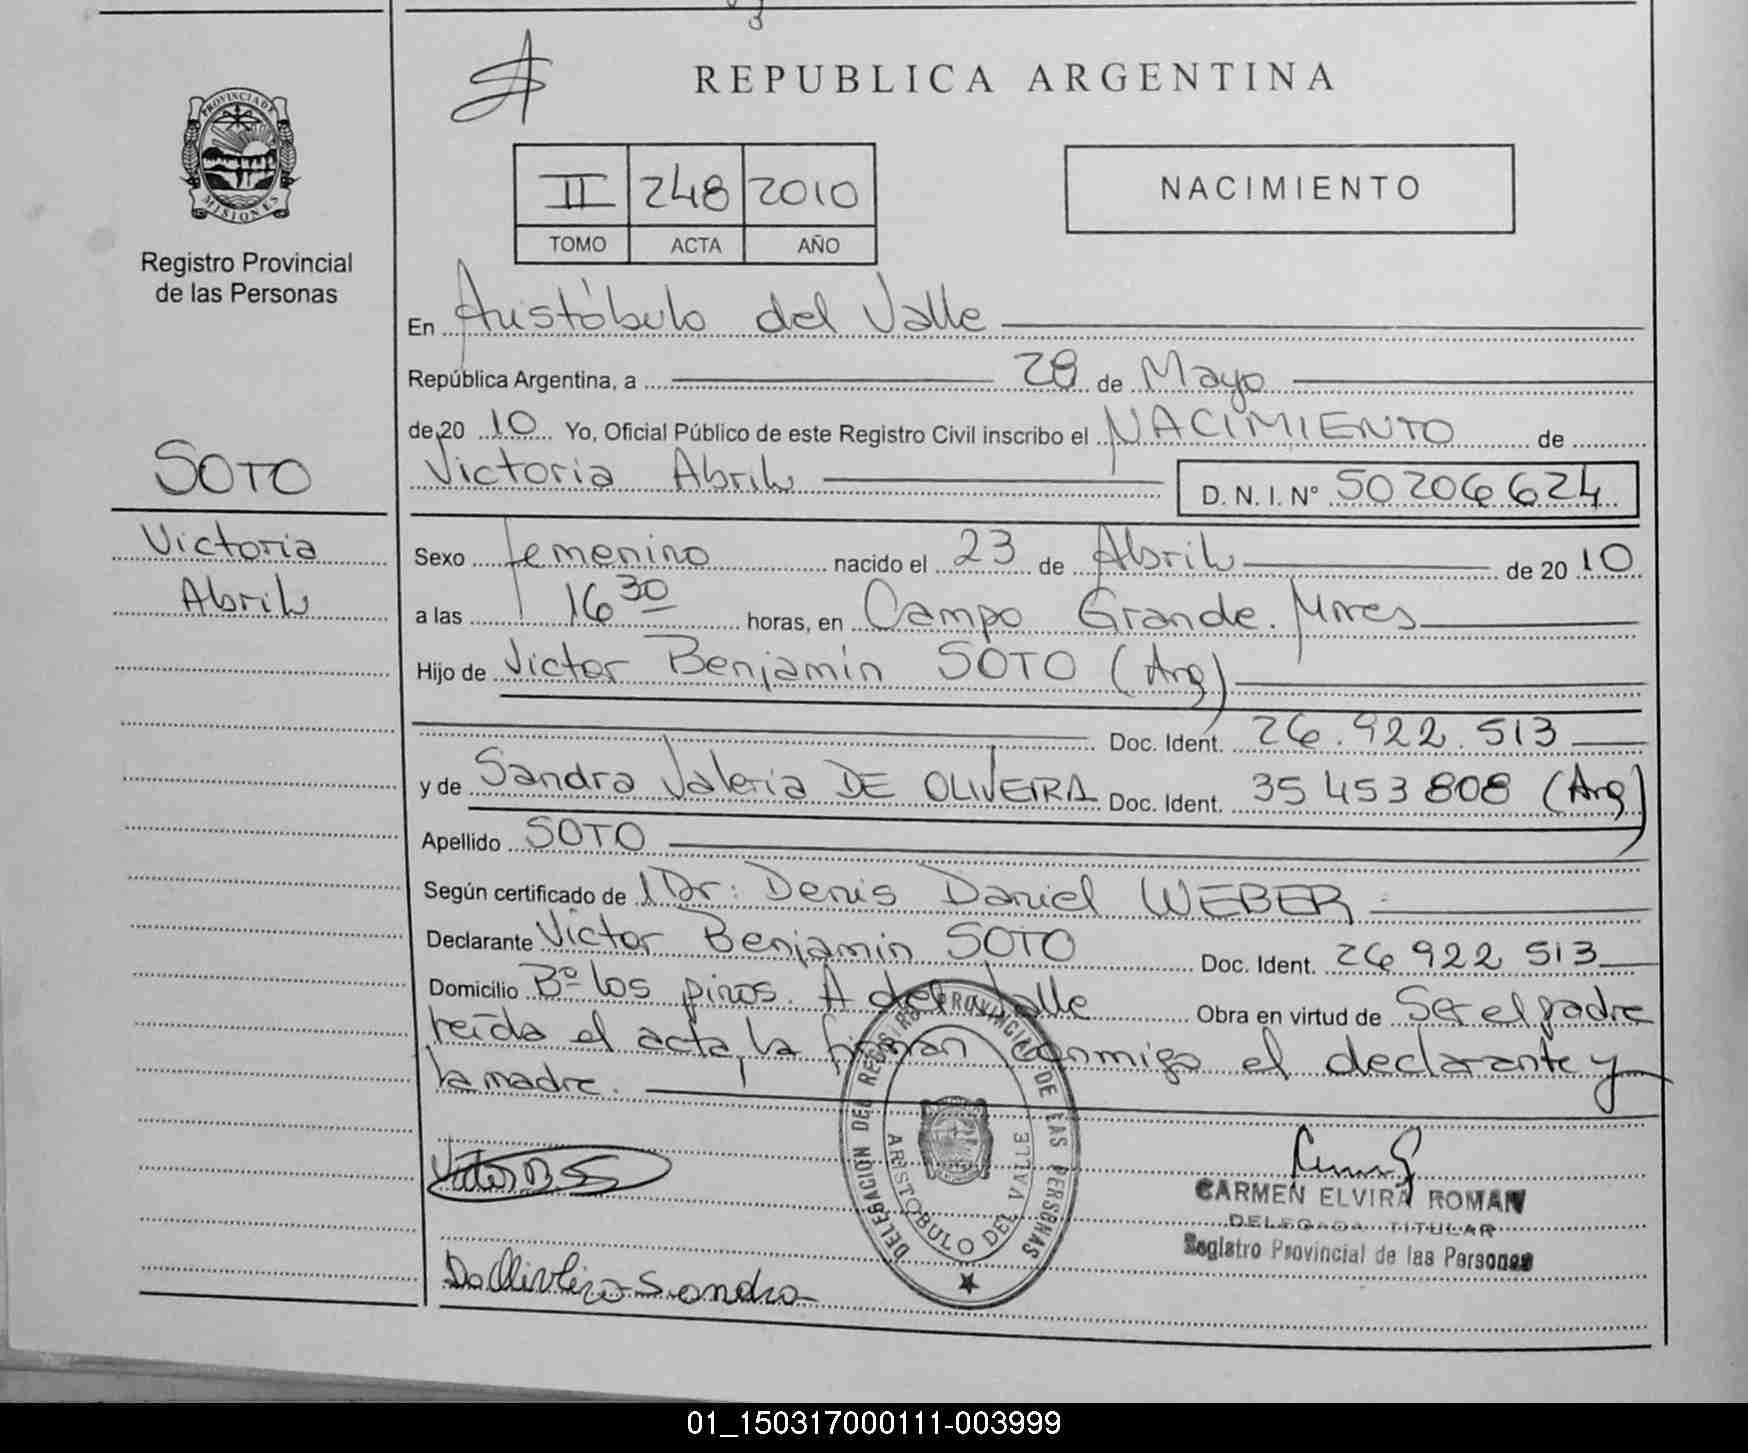 REPUBLICA ARGENTINA
PROVINCIA DE MISIONES
Registro Provincial
de las Personas
II 248 2010
TOMO ACTA AÑO
NACIMIENTO
SOTO
Victoria
Abril
En Aristóbulo del Valle
República Argentina, a 28 de Mayo
de 20 10 Yo, Oficial Público de este Registro Civil inscribo el NACIMIENTO de
Victoria Abril D. N. I. Nº 50206624
Sexo femenino nacido el 23 de Abril de 20 10
a las 16 30 horas, en Campo Grande. Mnes
Hijo de Victor Benjamín SOTO (Arg)
Doc. Ident. 26.922.513
y de Sandra Valeria DE OLIVEIRA Doc. Ident. 35 453 808 (Arg)
Apellido SOTO
Según certificado de Dr: Denis Daniel WEBER
Declarante Victor Benjamin SOTO Doc. Ident. 26 922 513
Domicilio Bº los pinos. A del Valle Obra en virtud de Ser el padre
leída el acta, la firman conmigo el declarante y
la madre.
DELEGACION DEL REGISTRO PROVINCIAL DE LAS PERSONAS
ARISTOBULO DEL VALLE
Victor B.
CARMEN ELVIRA ROMAN
DELEGADA TITULAR
Registro Provincial de las Personas
De Oliveira Sandra
01_150317000111-003999